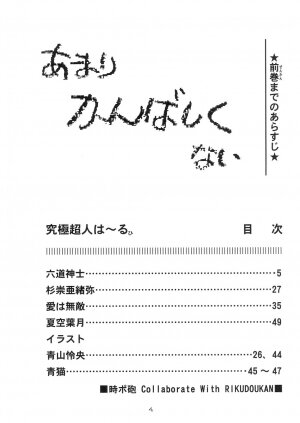 ★前巻までのあらすじ★
ぜんかん
あまり
かんばしく
ない
究極超人は〜るひ
目　次
六道神士……5
杉崇亜緒弥……27
愛は無敵……35
夏空葉月……49
イラスト
青山怜央……26、44
青猫……45〜47
■時ボ砲 Collaborate With RIKUDOUKAN■
4